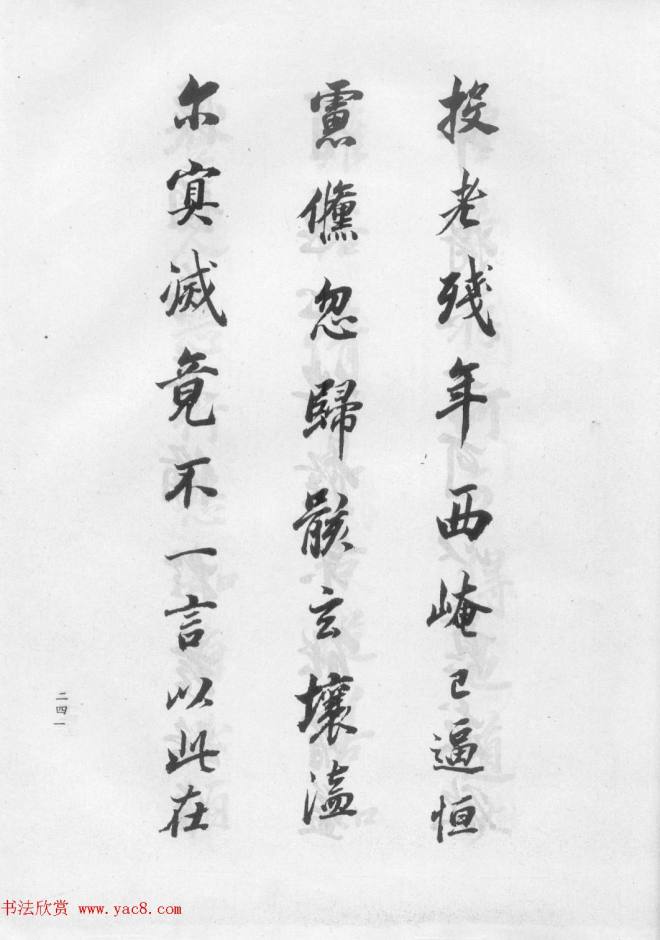 投老残年西崦已逼恒
慮儻忽歸骸玄壤溘
尔寘滅竟不一言以此在
二四一
书法欣赏 www.yac8.com